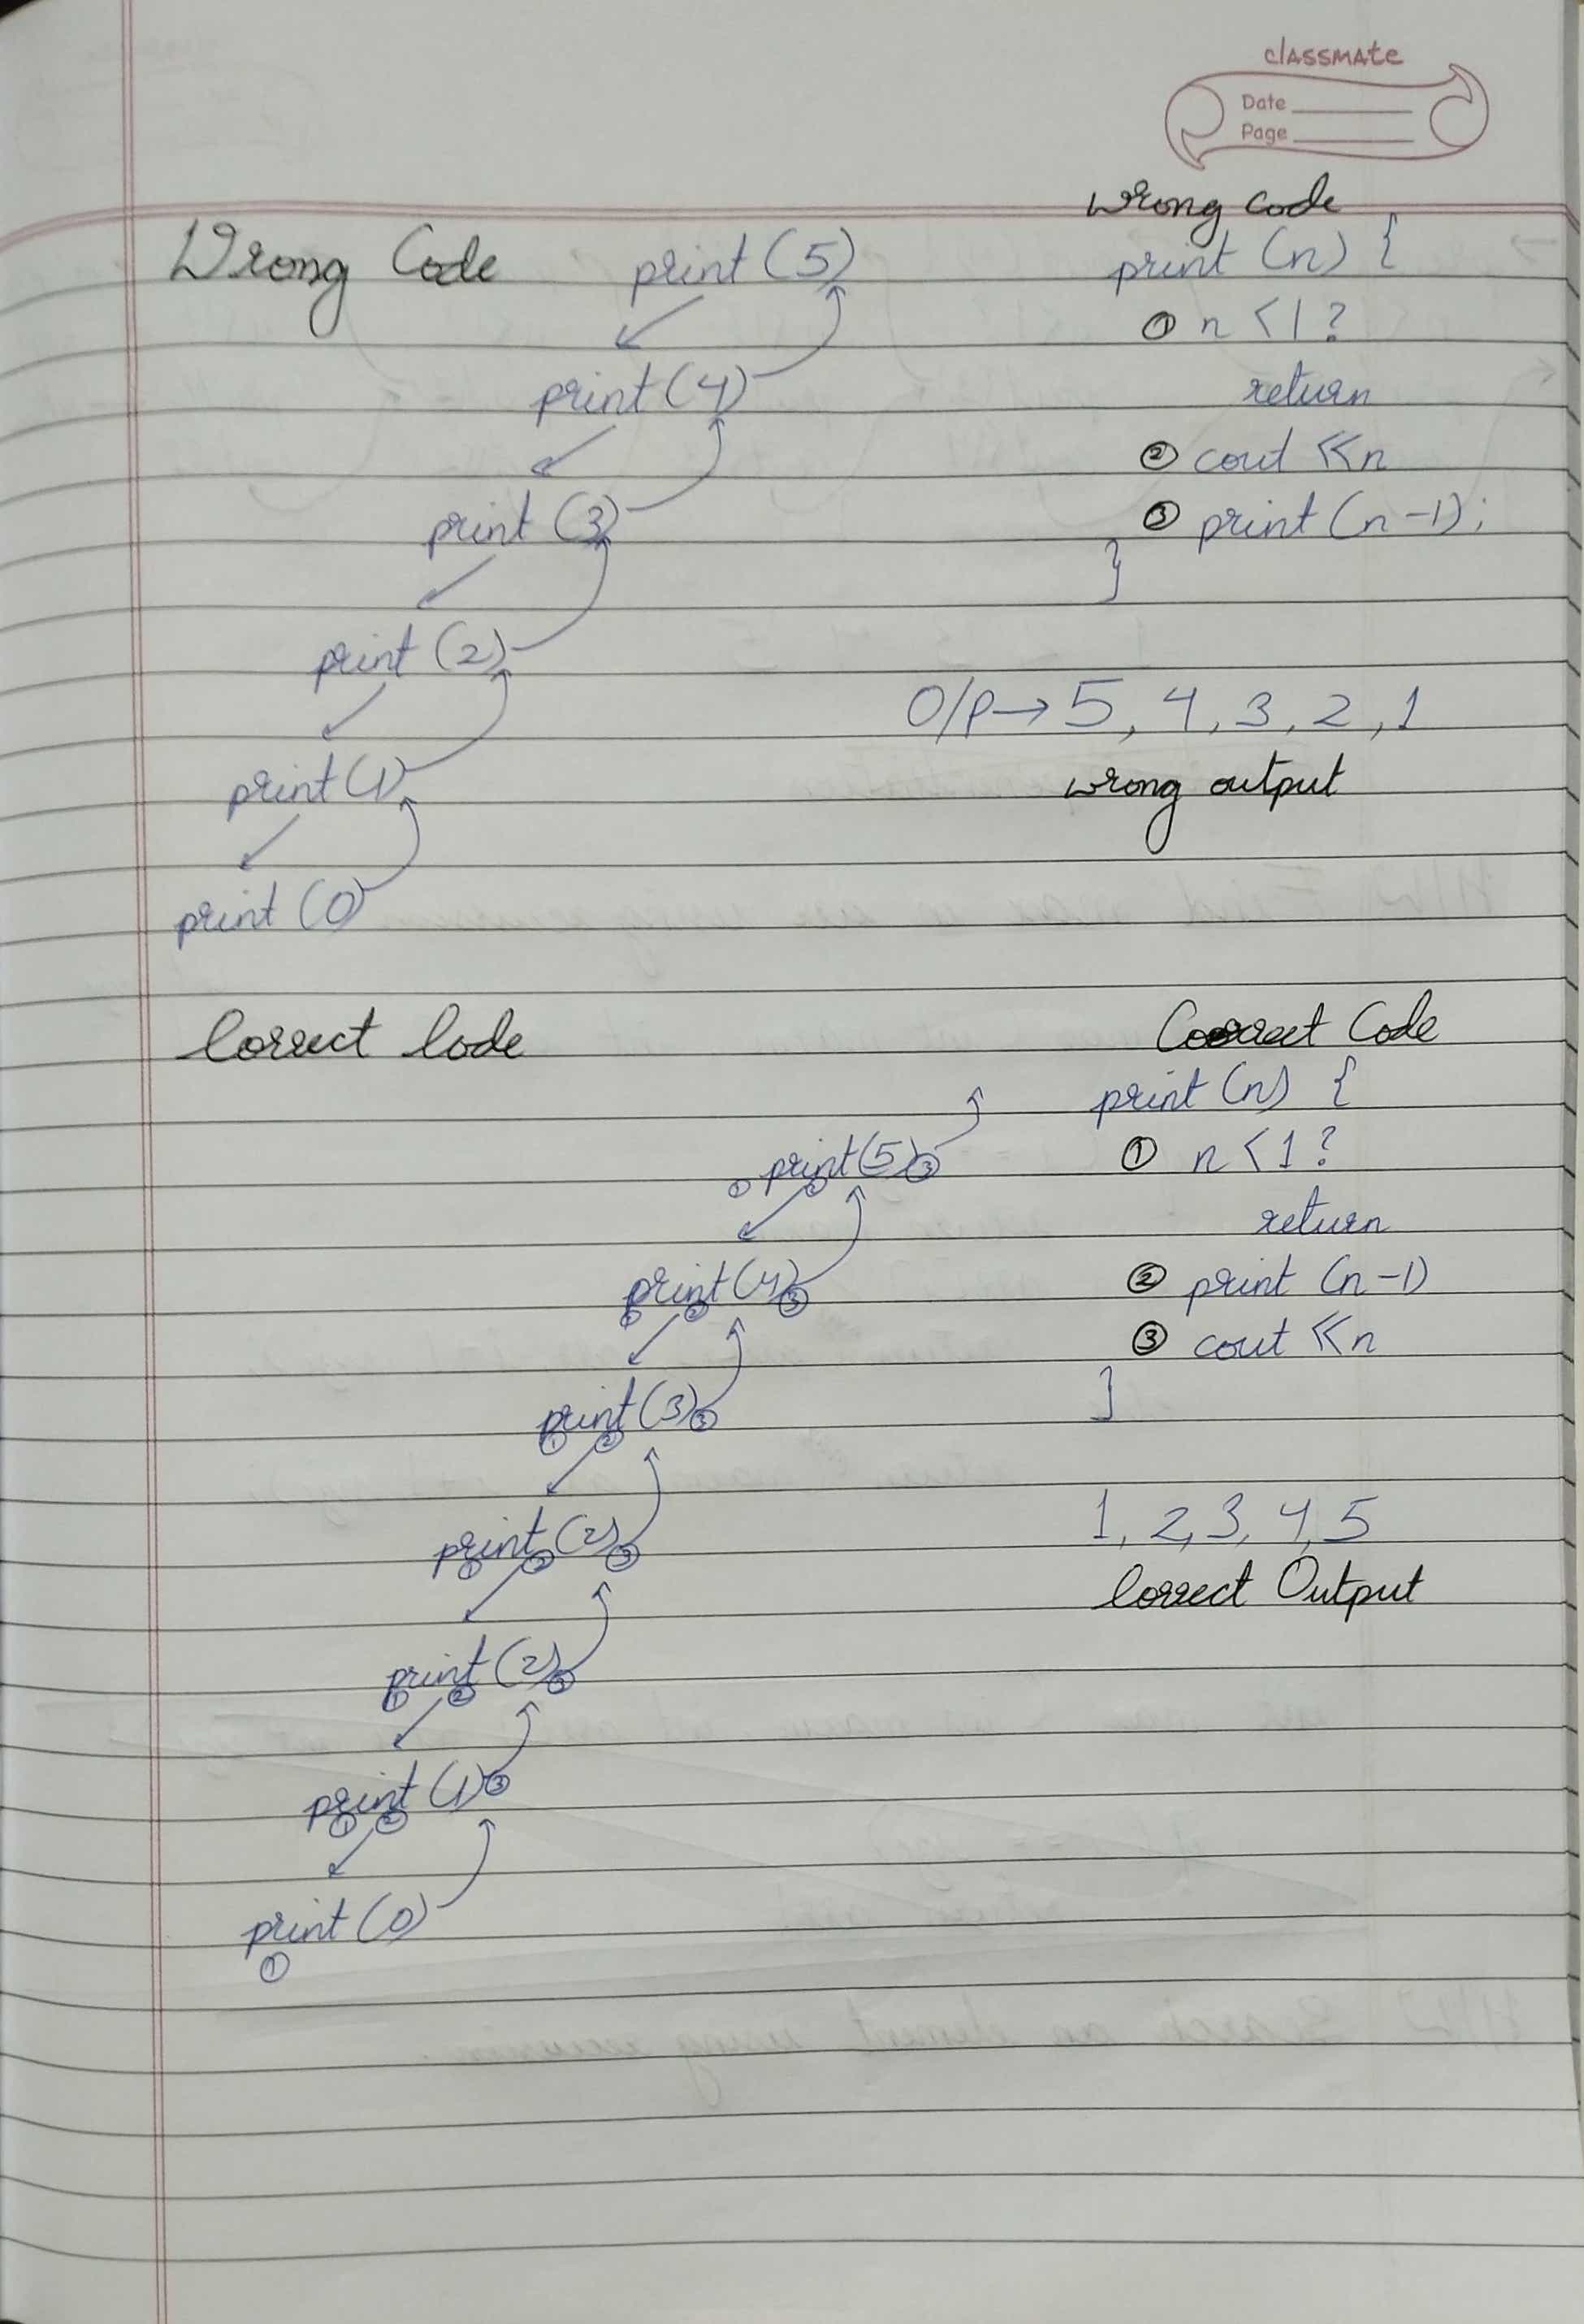 classmate
Date
Page
Wrong Code
print (5)
print (4)
print (3)
print (2)
print (1)
print (0)
Wrong code
print (n) {
① n < 1 ?
return
② cout << n
③ print (n-1);
}
O/P → 5, 4, 3, 2, 1
wrong output
Correct Code
print (5) ③
① ②
print (4) ③
① ②
print (3) ③
① ②
print (2) ③
① ②
print (2) ③
① ②
print (1) ③
① ②
print (0)
①
Correct Code
print (n) {
① n < 1 ?
return
② print (n-1)
③ cout << n
}
1, 2, 3, 4, 5
Correct Output